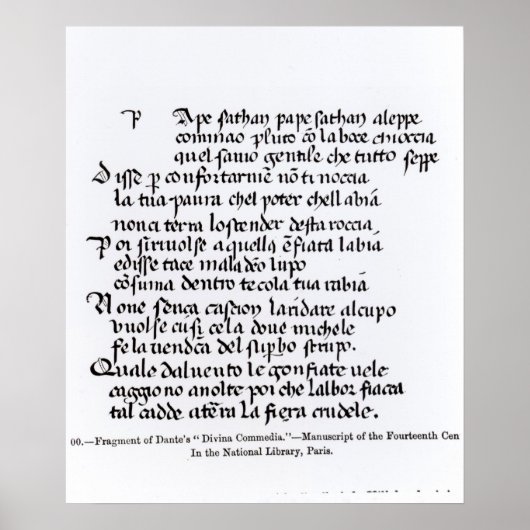 P Ape sathan pape sathan aleppe
cominao pluto cō laboce chioccia
quel savio gentile che tutto seppe
Disse p confortarmē nō ti noccia
la tua paura chel poter chell abiā
non ci terra lo scender desta roccia
Poi si rivolse a quella ēfiata labiā
e disse tace maladcō lupo
cōsuma dentro te cola tua rabiā
None senca cascion laridare alcupo
vuolse cusi cela dove michele
fe la vendcā del supbo strupo.
Quale dal vento le gonfiate vele
caggiono a nolte poi che lalbor fiacca
tal cadde a tēra la fiera crudele.
00.—Fragment of Dante's "Divina Commedia."—Manuscript of the Fourteenth Cen
In the National Library, Paris.